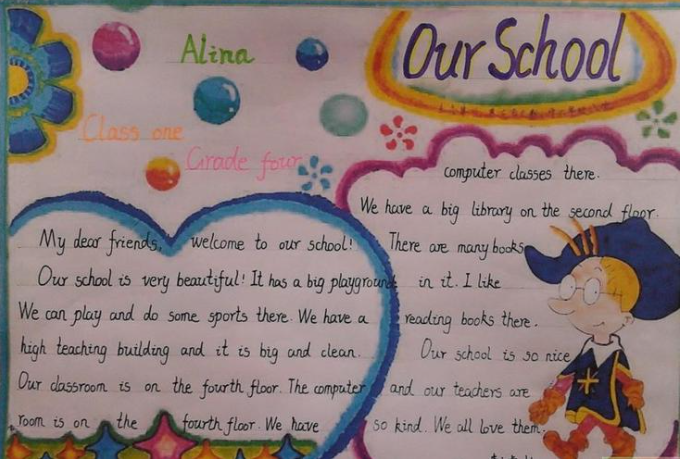 Alina
Our School
Class one
Grade four
My dear friends, welcome to our school!
Our school is very beautiful! It has a big playground
We can play and do some sports there. We have a
high teaching building and it is big and clean.
Our classroom is on the fourth floor. The computer
room is on the fourth floor. We have
computer classes there.
We have a big library on the second floor.
There are many books
in it. I like
reading books there.
Our school is so nice
and our teachers are
so kind. We all love them.